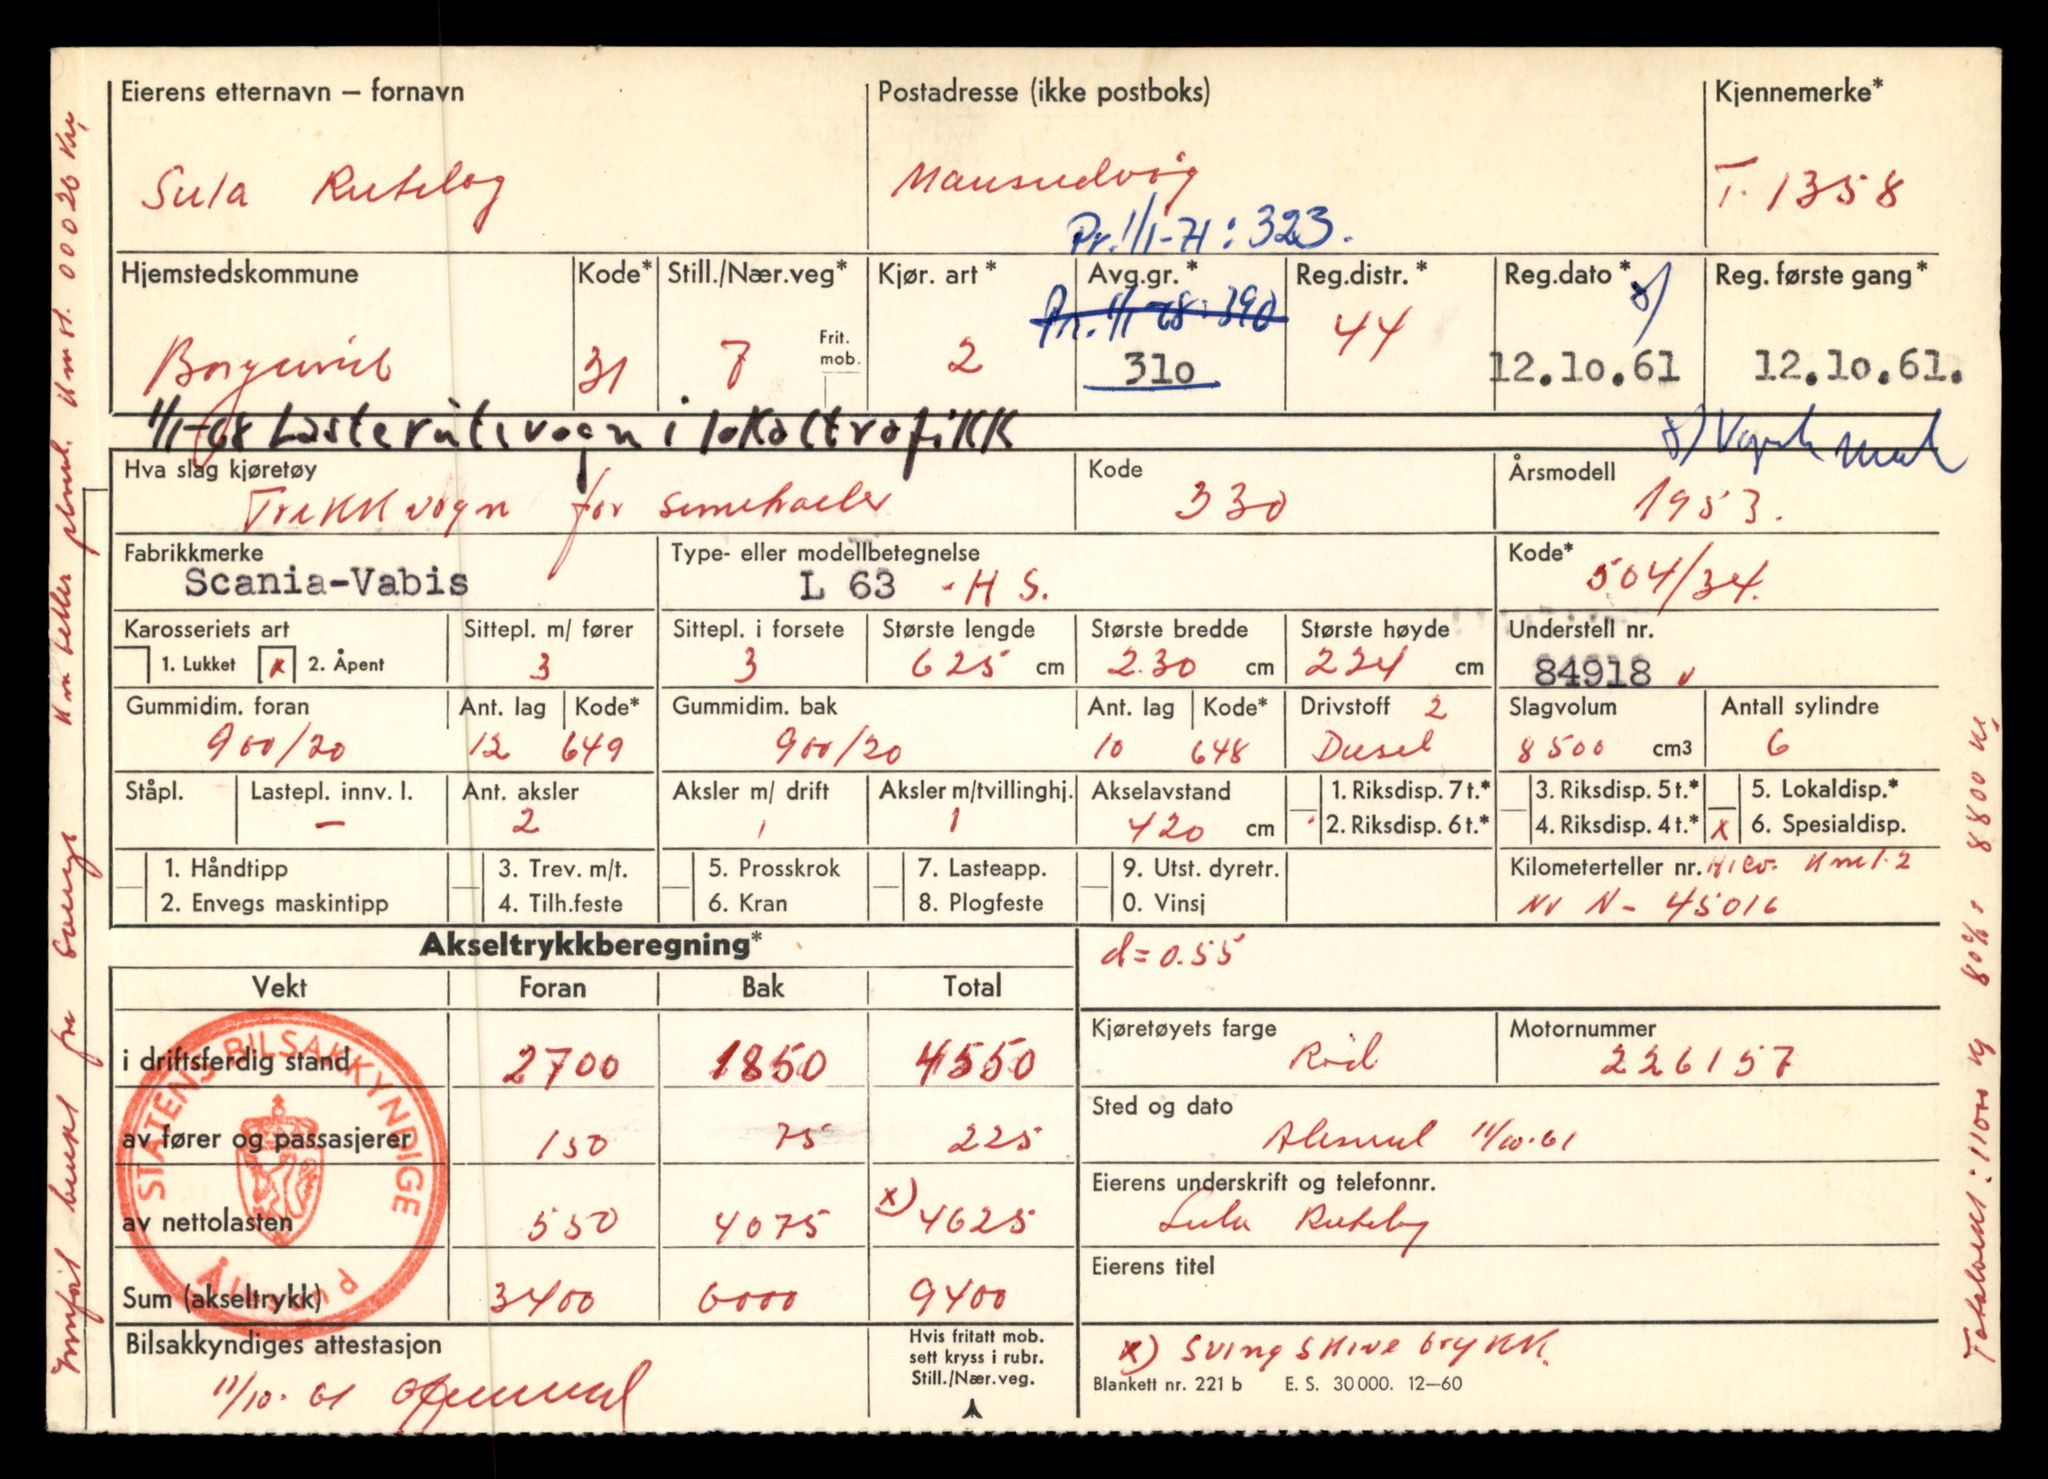 Eierens etternavn — fornavn Postadresse (ikke postboks) Kjennemerke*
Sula Rutelag Mausundvåg T-1358
Pr. 1/1-71: 323.
Hjemstedskommune Kode* Still./Nær.veg* Kjør. art* Avg.gr.* Reg.distr.* Reg.dato* Reg. første gang*
Pr. 1/1-68: 390
Borgund 31 7 Frit. mob. 2 310 44 12.10.61 12.10.61.
1/1-68 Lasterutevogn i lokaltrafikk
Hva slag kjøretøy Kode Årsmodell
Trekkvogn for semitrailer 330 1953.
Fabrikkmerke Type- eller modellbetegnelse Kode*
Scania-Vabis L 63 -HS. 504/34.
Karosseriets art Sittepl. m/ fører Sittepl. i forsete Største lengde Største bredde Største høyde Understell nr.
1. Lukket x 2. Åpent 3 3 625 cm 2.30 cm 224 cm 84918
Gummidim. foran Ant. lag Kode* Gummidim. bak Ant. lag Kode* Drivstoff 2 Slagvolum Antall sylindre
900/20 12 649 900/20 10 648 Diesel 8500 cm3 6
Ståpl. Lastepl. innv. l. Ant. aksler Aksler m/ drift Aksler m/tvillinghj. Akselavstand 1. Riksdisp. 7 t.* 3. Riksdisp. 5 t.* 5. Lokaldisp.*
— 2 1 1 420 cm 2. Riksdisp. 6 t.* 4. Riksdisp. 4 t.* x 6. Spesialdisp.
1. Håndtipp 3. Trev. m/t. 5. Prosskrok 7. Lasteapp. 9. Utst. dyretr. Kilometerteller nr.
2. Envegs maskintipp 4. Tilh.feste 6. Kran 8. Plogfeste 0. Vinsj Nr N- 45016
Akseltrykkberegning* d=0.55
Vekt Foran Bak Total
Kjøretøyets farge Motornummer
i driftsferdig stand 2700 1850 4550 Rød 226157
Sted og dato
av fører og passasjerer 150 75 225 Ålesund 11/10-61
Eierens underskrift og telefonnr.
av nettolasten 550 4075 x) 4625 Sula Rutelag
Eierens titel
Sum (akseltrykk) 3400 6000 9400
Bilsakkyndiges attestasjon Hvis fritatt mob. sett kryss i rubr. Still./Nær.veg.
x) Svingskive trykk.
11/10-61
Blankett nr. 221 b E. S. 30000. 12—60
STATENS BILSAKKYNDIGE
Ålesund
Totalvekt: 11000 kg 80%: 8800 kg